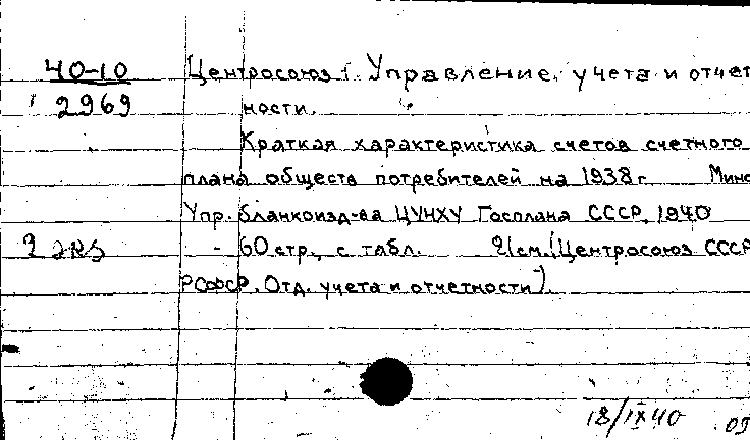 40-10 Центросоюз. Управление учета и отчет
2969 ности.
Краткая характеристика счетов счетного
плана обществ потребителей на 1938 г. Минс
Упр. бланкоизд-ва ЦУНХУ Госплана СССР, 1940
2 экз - 60 стр., с табл. 21 см. (Центросоюз СССР
РСФСР. Отд. учета и отчетности).
18/IX 40 09